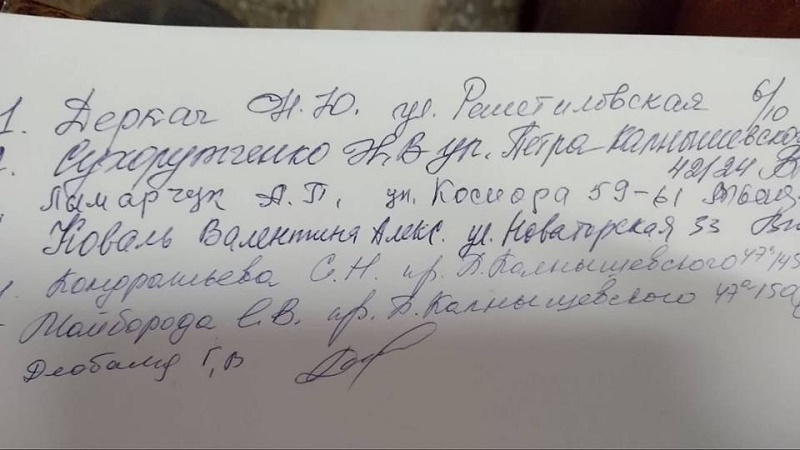 1. Деркач Н.Ю. ул. Решетиловская 6/10
Сухорутченко Н.В ул. Петра Калнышевско
42/24
Лымарчук А.П. ул. Косиора 59-61
Коваль Валентина Алекс. ул. Новаторская 33
Кондратьева С.Н. пр. П.Калнышевского 47
Майборода С.В. пр. П.Калнышевского 47
Г.В